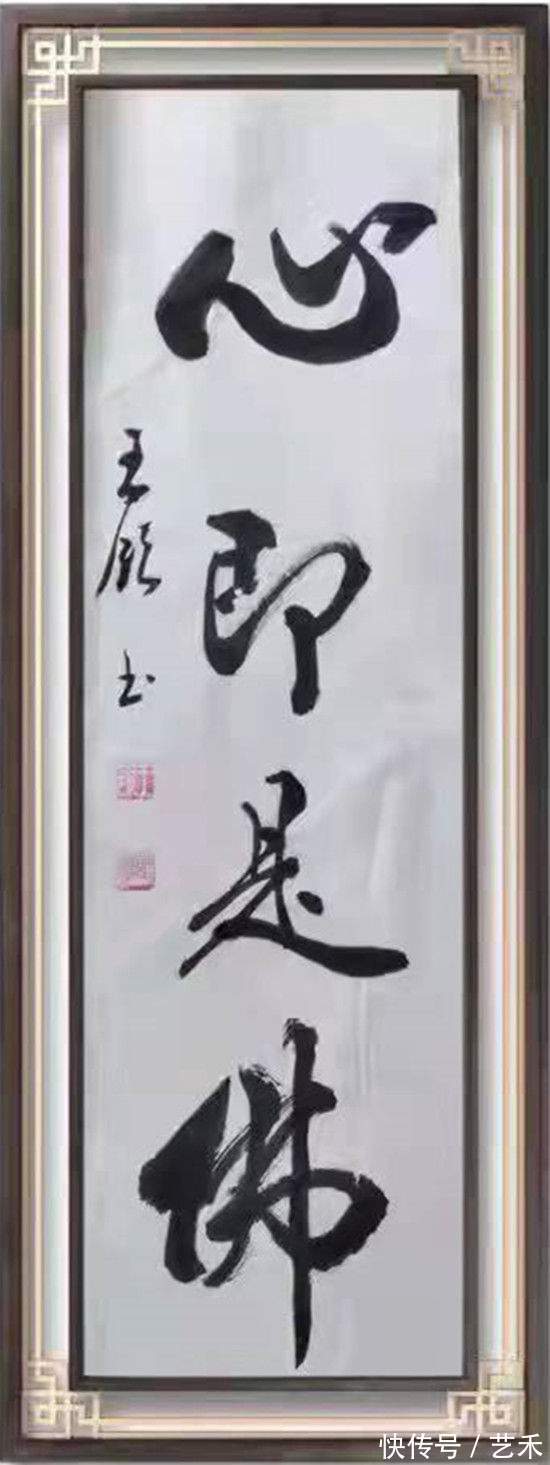 心即是佛
王颀书
快传号／艺禾